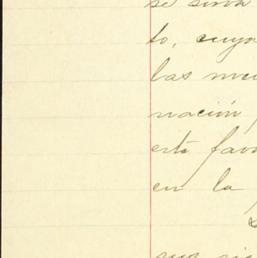 se sirva
to, cuya
las
nación
este favo
en la
que